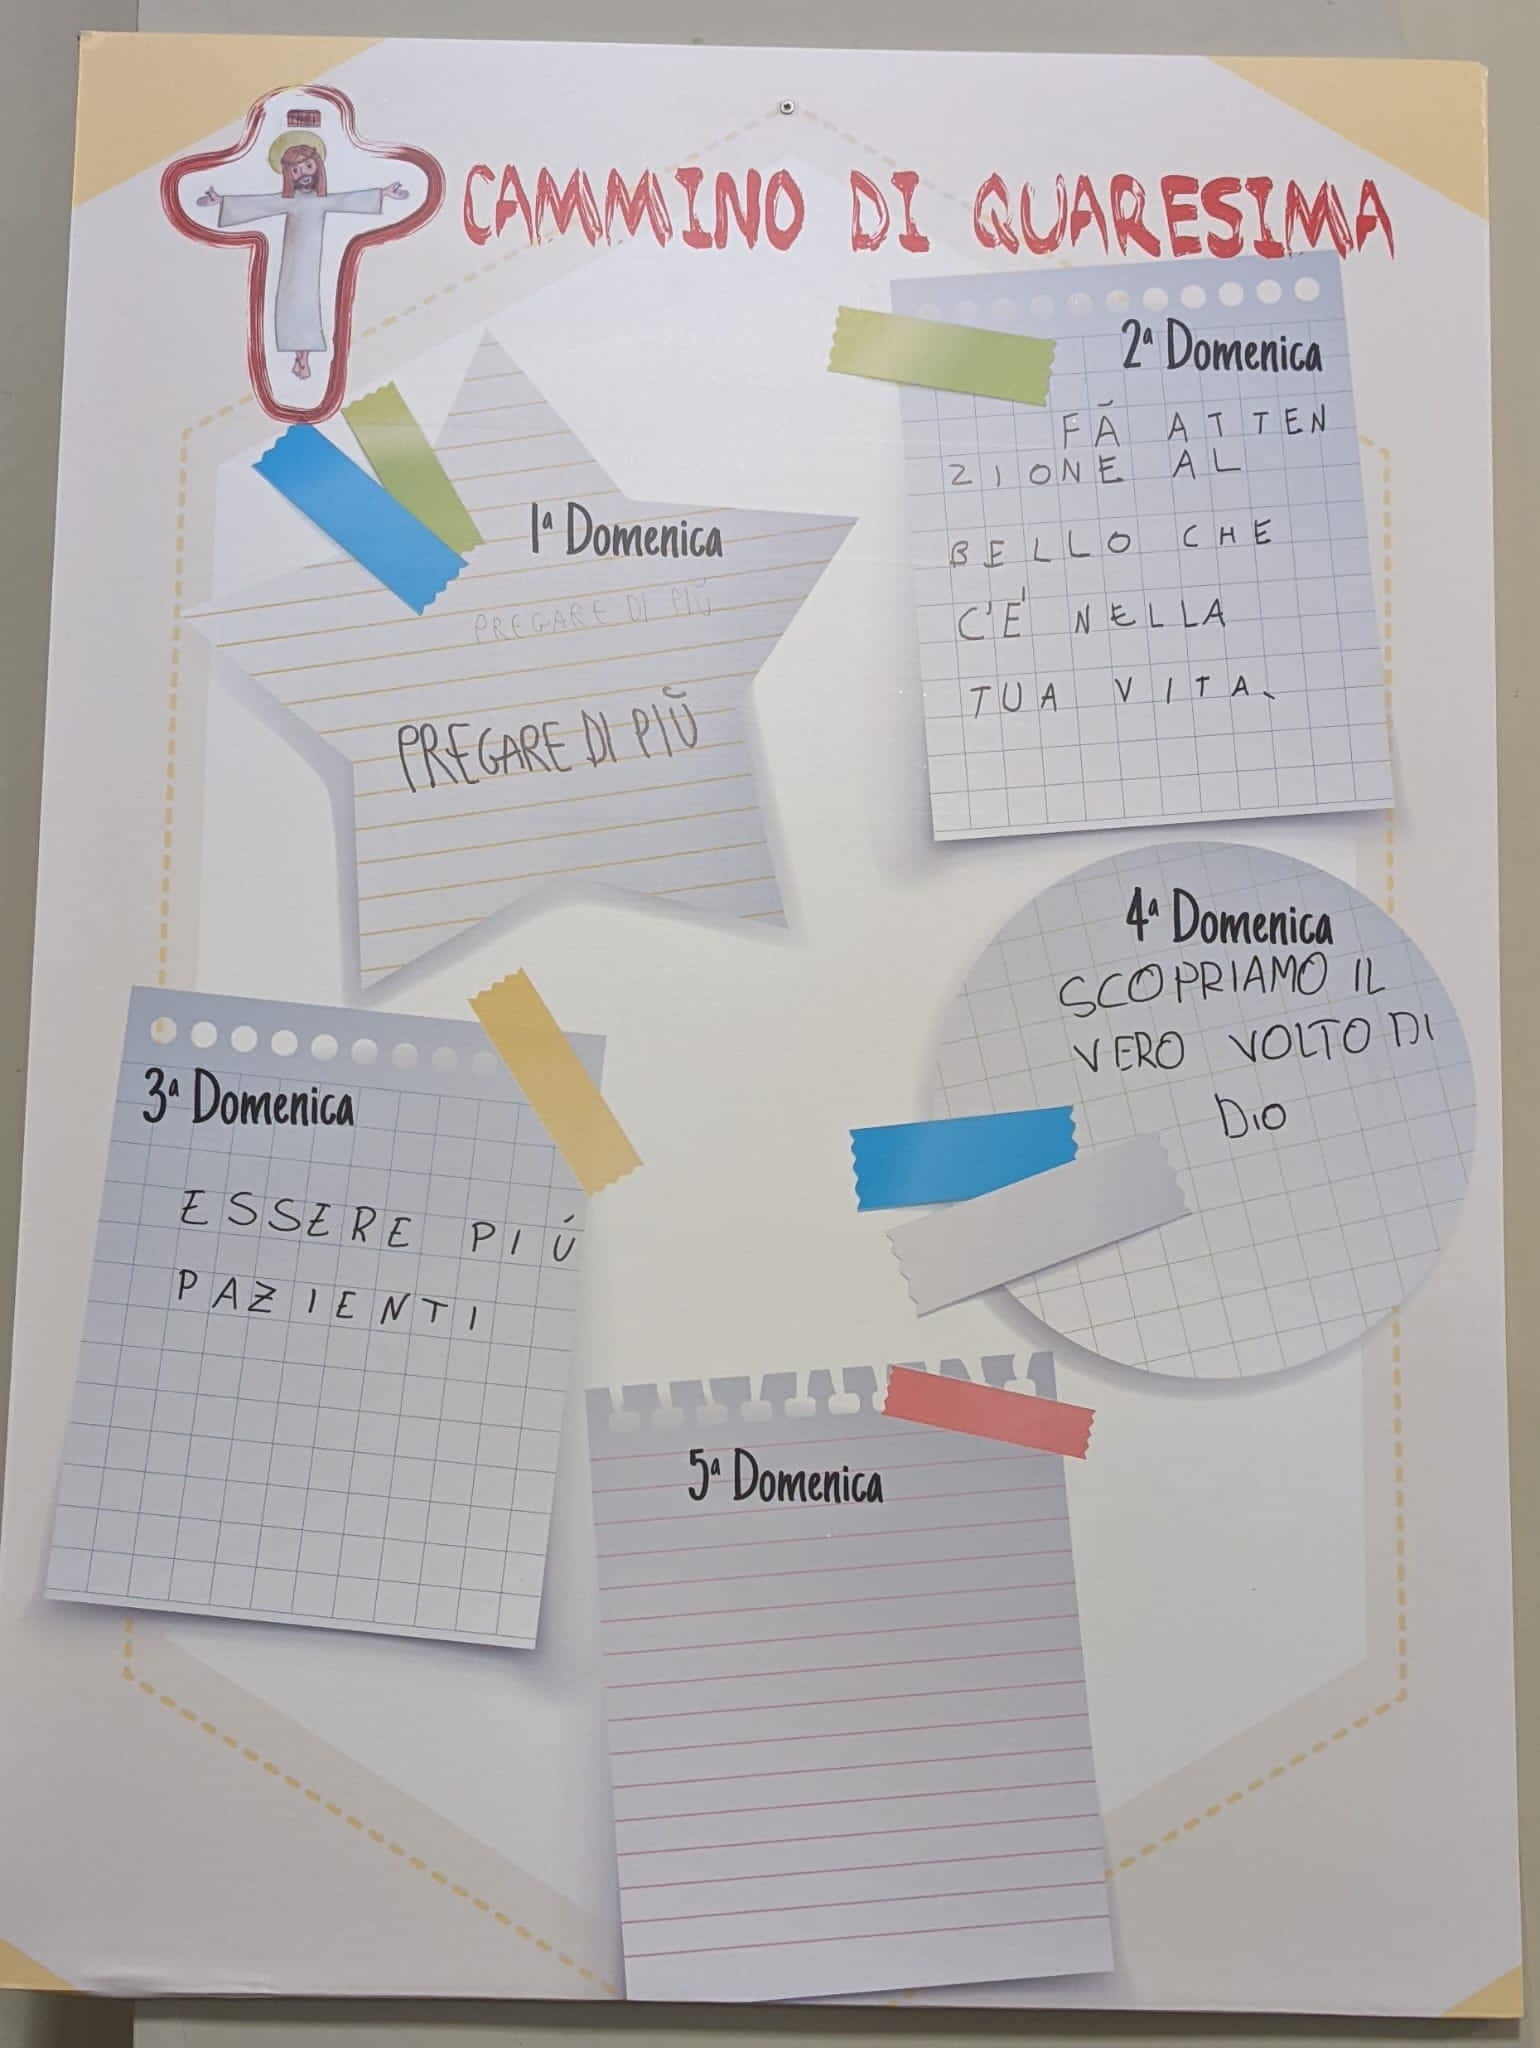 INRI
CAMMINO DI QUARESIMA
1ª Domenica
PREGARE DI PIÙ
PREGARE DI PIÙ
2ª Domenica
FÃ ATTEN
ZIONE AL
BELLO CHE
C'E' NELLA
TUA VITA.
3ª Domenica
ESSERE PIÚ
PAZIENTI
4ª Domenica
SCOPRIAMO IL
VERO VOLTO DI
DIO
5ª Domenica